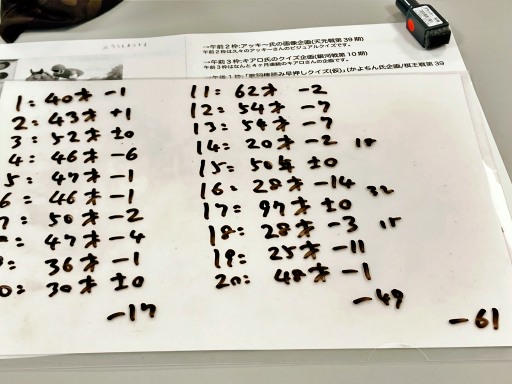 →午前2枠:アッキー氏の画像企画(天元戦第39期)
午前2枠は久々のアッキーさんのビジュアルクイズです。
→午前3枠:キアロ氏のクイズ企画(銀河戦第10期)
午前3枠はなんと4ヶ月連続のキアロさんの企画です。
→午後1枠:「歌詞横読み早押しクイズ(仮)」(かよちん氏企画/棋王戦第39
1: 40才 -1
2: 43才 +1
3: 52才 ±0
4: 46才 -6
5: 47才 -1
6: 46才 -1
7: 50才 -2
47才 -4
9: 36才 -1
0: 30才 ±0
-17
11: 62才 -2
12: 54才 -7
13: 54才 -7
14: 20才 -2 18
15: 50年 ±0
16: 28才 -14 32
17: 97才 ±0
18: 28才 -3 15
19: 25才 -11
20: 48才 -1
-49
-61